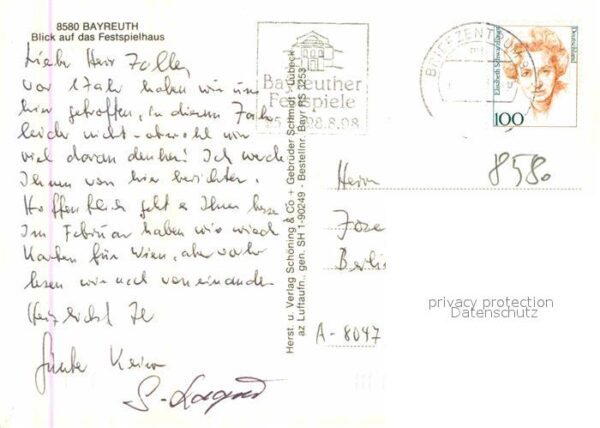 8580 BAYREUTH
Blick auf das Festspielhaus
Lieber Herr
vor 1 Jahr haben wir uns
hier getroffen, in diesem Jahr
leider nicht - obwohl wir
viel daran denken! Ich werde
Ihnen von hier berichten.
Hoffentlich geht es Ihnen
Im Februar haben wir wied
Karten für Wien, aber vorhe
lesen wir noch voneinander
Herzlichst
Günter
Herst. u. Verlag Schöning & Co + Gebrüder Schmidt - Lübeck
az Luftaufn., gen. SH 1-90249 - Bestellnr. Bayr RS 3253
Bayreuther
Festspiele
28.8.98
BRIEFZENTRUM
Elisabeth Schwarzhaupt
Deutschland
100
8580
Herrn
Joze
Berlin
A-8047
privacy protection
Datenschutz